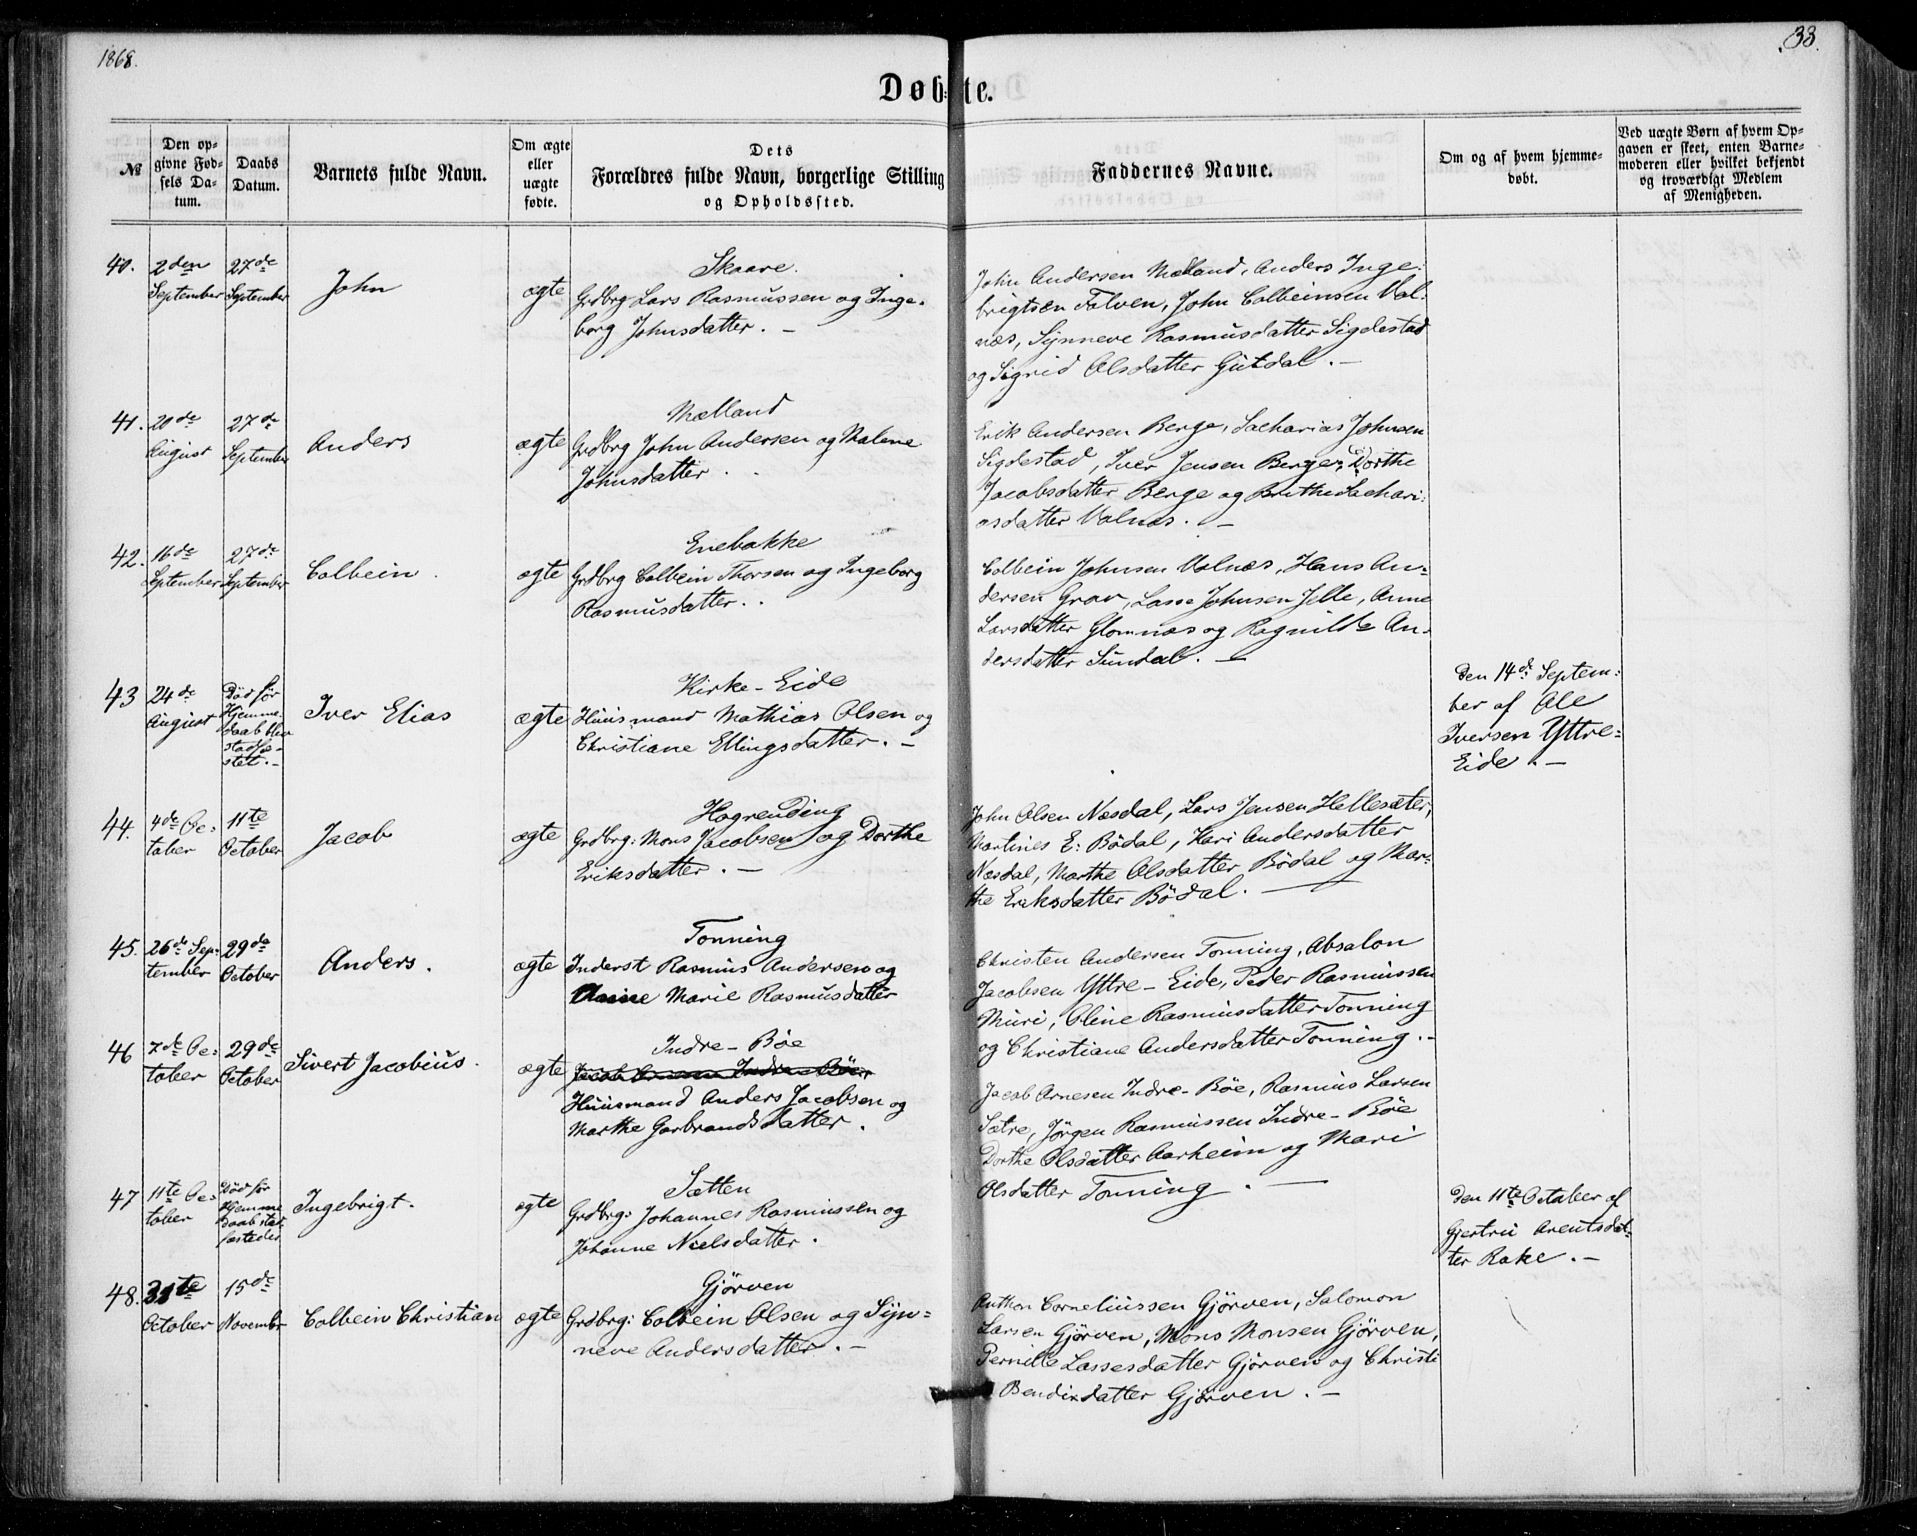 1868.
33.
Døbte.
№
Den opgivne Fødsels Datum.
Daabs Datum.
Barnets fulde Navn.
Om ægte eller uægte fødte.
Dets Forældres fulde Navn, borgerlige Stilling og Opholdssted.
Faddernes Navne.
Om og af hvem hjemmedøbt.
Ved uægte Børn af hvem Opgaven er skeet, enten Barnemoderen eller hvilket bekjendt og troværdigt Medlem af Menigheden.
40.
2den
September
27de
September
John
ægte
Skaare.
Grdbrg Lars Rasmussen og Inge-
borg Johnsdatter. -
John Andersen Mælland, Anders Inge-
brigtsen Folven, John Colbeinsen Vol-
næs, Synneve Rasmusdatter Sigdestad
og Sigrid Olsdatter Gutdal. -
41.
20de
August
27de
September
Anders
ægte
Mælland
Grdbrg John Andersen og Malene
Johnsdatter.
Erik Andersen Berge, Sacharias Johnsen
Sigdestad, Iver Jensen Berge, Dorthe
Jacobsdatter Berge og Brithe Sachari-
asdatter Volnæs. -
42.
16de
September
27de
September
Colbein.
ægte
Enebakke
Grdbrg Colbein Thorsen og Ingeborg
Rasmusdatter.
Colbein Johnsen Volnæs, Hans An-
dersen Grov, Lasse Johnsen Jelle, Anne
Larsdatter Glomnæs og Ragnilde An-
dersdatter Sundal. -
43
24de
August
Død før
Hjemme-
daab blev
stadfæ-
stet. -
Iver Elias
ægte
Kirke-Eide
Huusmand Mathias Olsen og
Christiane Ellingsdatter. -
Den 14de Septem-
ber af Ole
Iversen Yttre-
Eide. -
44.
4de Oc-
tober
11te
October
Jacob
ægte
Hogrending
Grdbrg: Mons Jacobsen og Dorthe
Eriksdatter. -
John Olsen Næsdal, Lars Jensen Hellesæter,
Martines E: Bödal, Kari Andersdatter
Næsdal, Marthe Olsdatter Bödal og Mar-
the Eriksdatter Bödal. -
45.
26de Sep-
tember
29de
October
Anders.
ægte
Tonning
Inderst Rasmus Andersen og
Marie Rasmusdatter
Christen Andersen Tonning, Absalon
Jacobsen Yttre-Eide, Peder Rasmussen
Muri, Oline Rasmusdatter Tonning
og Christiane Andersdatter Tonning. -
46
7de Oc-
tober
29de
October
Sivert Jacobius.
ægte
Indre-Böe
Huusmand Anders Jacobsen og
Marthe Garbrandsdatter.
Jacob Arnesen Indre-Böe, Rasmus Larsen
Sætre, Jörgen Rasmussen Indre-Böe
Dorthe Olsdatter Aarheim og Mari
Olsdatter Tonning. -
47
11te Oc-
tober
Død før
Hjemme
daab stad
fæstedes
Ingebrigt.
ægte
Sætten
Grdbrg: Johannes Rasmussen og
Johanne Nielsdatter.
Den 11te October af
Gjertru Arentsdat-
ter Rake. -
48.
31te
October
15de
Novembr
Colbein Christian
ægte
Gjörven
Grdbrg: Colbein Olsen og Syn-
neve Andersdatter. -
Anthon Corneliussen Gjörven, Salomon
Larsen Gjörven, Mons Monsen Gjörven,
Pernille Lassesdatter Gjörven og Christi
Bendixdatter Gjörven. -